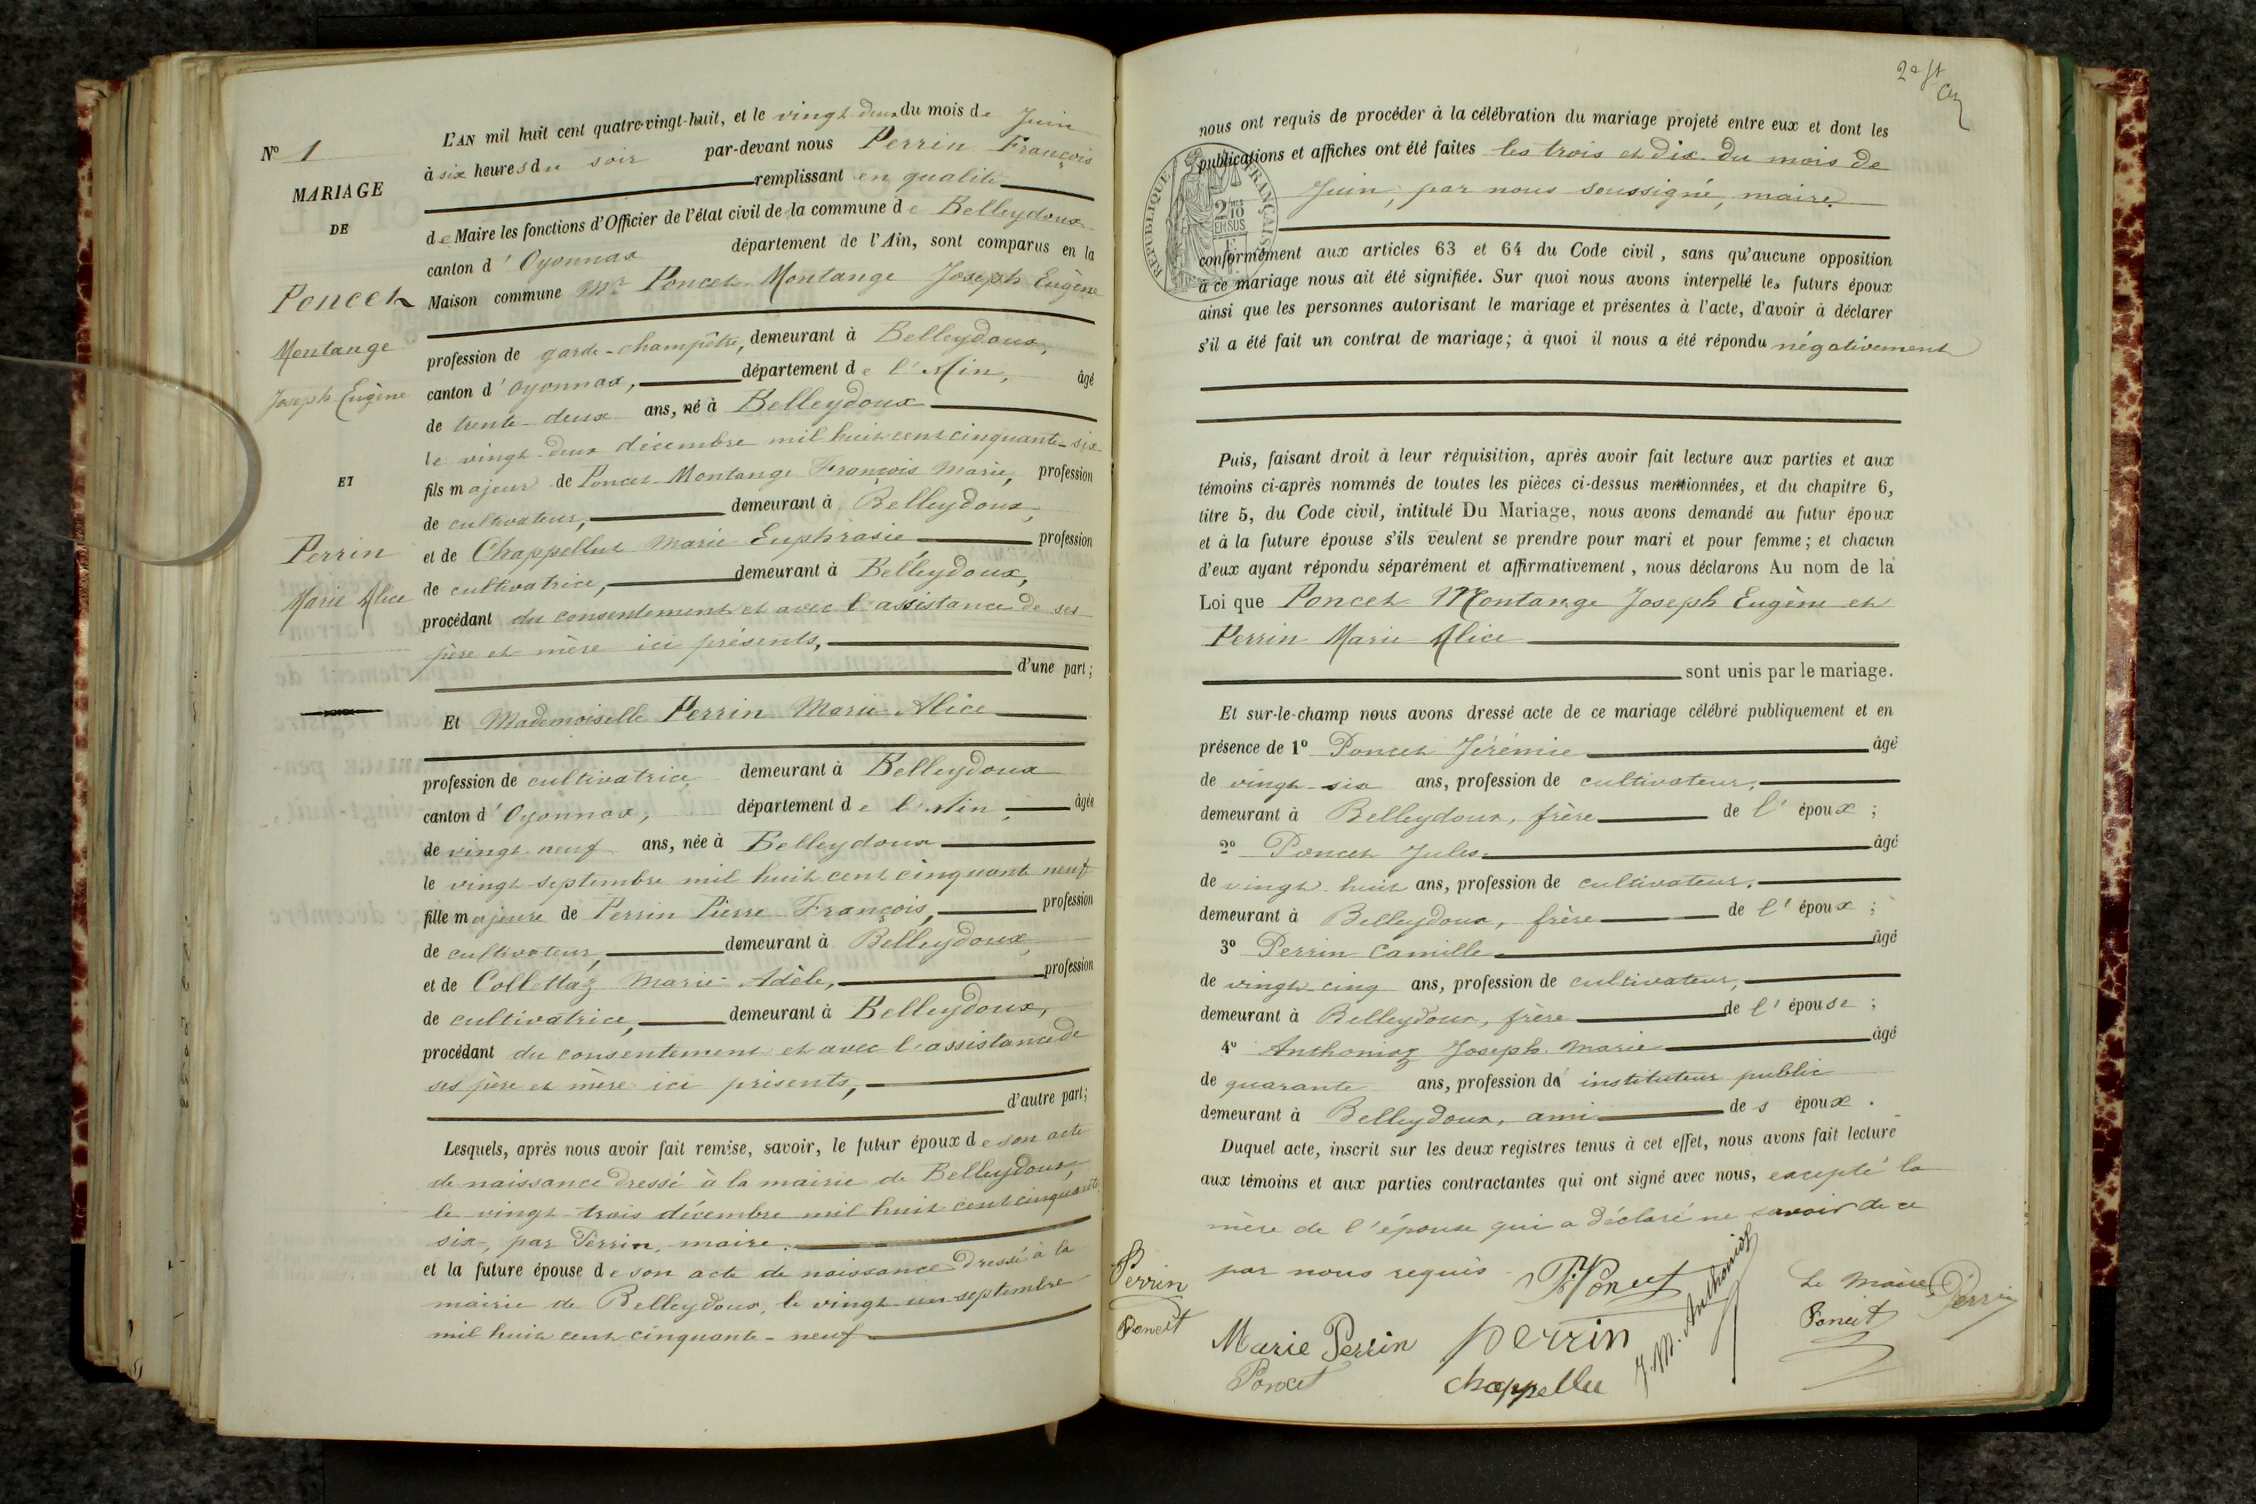 N° 1
MARIAGE
DE
Poncet
Montange
Joseph Eugène
ET
Perrin
Marie Alice
L'AN mil huit cent quatre-vingt-huit, et le vingt deux du mois de Juin
à six heures du soir par-devant nous Perrin François
remplissant en qualité
de Maire les fonctions d'Officier de l'état civil de la commune de Belleydoux
canton d'Oyonnax département de l'Ain, sont comparus en la
Maison commune Mr Poncet-Montange Joseph Eugène
profession de garde-champêtre, demeurant à Belleydoux,
canton d'Oyonnax, département de l'Ain, âgé
de trente-deux ans, né à Belleydoux
le vingt-deux décembre mil huit cent cinquante-six
fils majeur de Poncet-Montange François Marie, profession
de cultivateur, demeurant à Belleydoux,
et de Chappellut Marie Euphrasie profession
de cultivatrice, demeurant à Belleydoux,
procédant du consentement et avec l'assistance de ses
père et mère ici présents,
d'une part;
Et Mademoiselle Perrin Marie-Alice
profession de cultivatrice demeurant à Belleydoux
canton d'Oyonnax, département de l'Ain, âgée
de vingt neuf ans, née à Belleydoux
le vingt-septembre mil huit cent cinquante neuf
fille majeure de Perrin Pierre François, profession
de cultivateur, demeurant à Belleydoux
et de Collettaz Marie-Adèle, profession
de cultivatrice, demeurant à Belleydoux,
procédant du consentement et avec l'assistance de
ses père et mère ici présents,
d'autre part;
Lesquels, après nous avoir fait remise, savoir, le futur époux de son acte
de naissance dressé à la mairie de Belleydoux,
le vingt-trois décembre mil huit cent cinquante
six, par Perrin, maire.
et la future épouse de son acte de naissance dressé à la
mairie de Belleydoux, le vingt-un septembre
mil huit cent cinquante-neuf
nous ont requis de procéder à la célébration du mariage projeté entre eux et dont les
publications et affiches ont été faites les trois et dix du mois de
Juin, par nous soussigné, maire
RÉPUBLIQUE FRANÇAISE
2/10
EN SUS
conformément aux articles 63 et 64 du Code civil, sans qu'aucune opposition
à ce mariage nous ait été signifiée. Sur quoi nous avons interpellé les futurs époux
ainsi que les personnes autorisant le mariage et présentes à l'acte, d'avoir à déclarer
s'il a été fait un contrat de mariage; à quoi il nous a été répondu négativement
Puis, faisant droit à leur réquisition, après avoir fait lecture aux parties et aux
témoins ci-après nommés de toutes les pièces ci-dessus mentionnées, et du chapitre 6,
titre 5, du Code civil, intitulé Du Mariage, nous avons demandé au futur époux
et à la future épouse s'ils veulent se prendre pour mari et pour femme; et chacun
d'eux ayant répondu séparément et affirmativement, nous déclarons Au nom de la
Loi que Poncet Montange Joseph Eugène et
Perrin Marie Alice
sont unis par le mariage.
Et sur-le-champ nous avons dressé acte de ce mariage célébré publiquement et en
présence de 1° Poncet Jérémie âgé
de vingt-six ans, profession de cultivateur,
demeurant à Belleydoux, frère de l'époux;
2° Poncet Jules âgé
de vingt-huit ans, profession de cultivateur,
demeurant à Belleydoux, frère de l'époux;
3° Perrin Camille âgé
de vingt-cinq ans, profession de cultivateur,
demeurant à Belleydoux, frère de l'épouse;
4° Anthonioz Joseph-Marie âgé
de quarante ans, profession de instituteur public
demeurant à Belleydoux, ami des époux.
Duquel acte, inscrit sur les deux registres tenus à cet effet, nous avons fait lecture
aux témoins et aux parties contractantes qui ont signé avec nous, excepté la
mère de l'épouse qui a déclaré ne savoir de ce
par nous requis
Perrin
Poncet
Poncet
J. M. Anthonioz
Le Maire
Perrin
Poncet
Marie Perrin
Perrin
Poncet
Chappellu